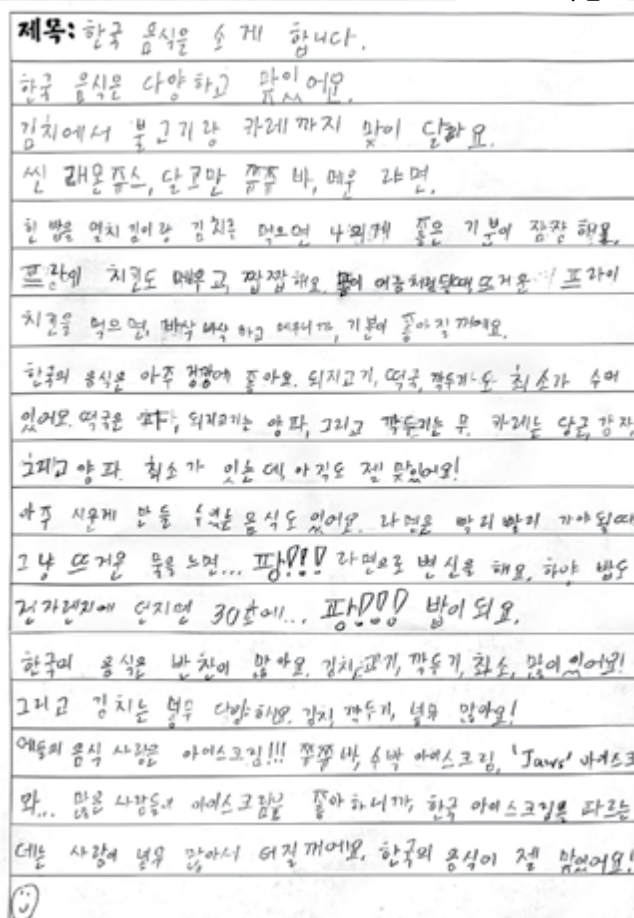 제목: 한국 음식을 소게 합니다.
한국 음식은 다양하고 맞있어요.
김치에서 불고기랑 카레까지 맞이 달라요.
씬 래몬쥬스, 달코만 쮸쮸 바, 메운 라면.
힌 밥을 멸치 김이랑 김치를 먹으면 나에게 좋은 기분이 잠장 해요.
프라이 치킨도 메우고 짭짭해요. 몸이 어름처럼 뜨거운 프라이
치킨을 먹으면, 바삭 바삭 하고 메우니까, 기분이 좋아질꺼에요.
한국의 음식은 아주 겅강에 좋아요. 되지고기, 떡국, 깍두기도 최소가 수머
있어요. 떡국은 파, 되지고기는 양파, 그리고 깍두기는 무. 카레는 당근, 감자,
그리고 양파. 최소가 있는데 아직도 젤 맞있어요!
아주 시운게 만들 수있는 음식도 있어요. 라면은 빨리 빨리 가야될때
그냥 뜨거운 물을 느면... 팡!!! 라면으로 변신을 해요. 하얀 밥도
전자렌지에 던지면 30초에... 팡!!! 밥이 되요.
한국의 음식은 반찬이 많아요. 김치, 고기, 깍두기, 최소, 많이 있어요!
그리고 김치는 넘우 다양해요. 김치, 깍두기, 넘우 많아요!
애들의 음식 사랑은 아이스크림!!! 쮸쮸바, 수박 아이스크림, 'Jaws' 아이스크
와... 많은 사람들이 아이스크림을 좋아하니까, 한국 아이스크림을 파르는
데는 사람이 넘우 많아서 터질꺼에요. 한국의 음식이 젤 맞있어요!